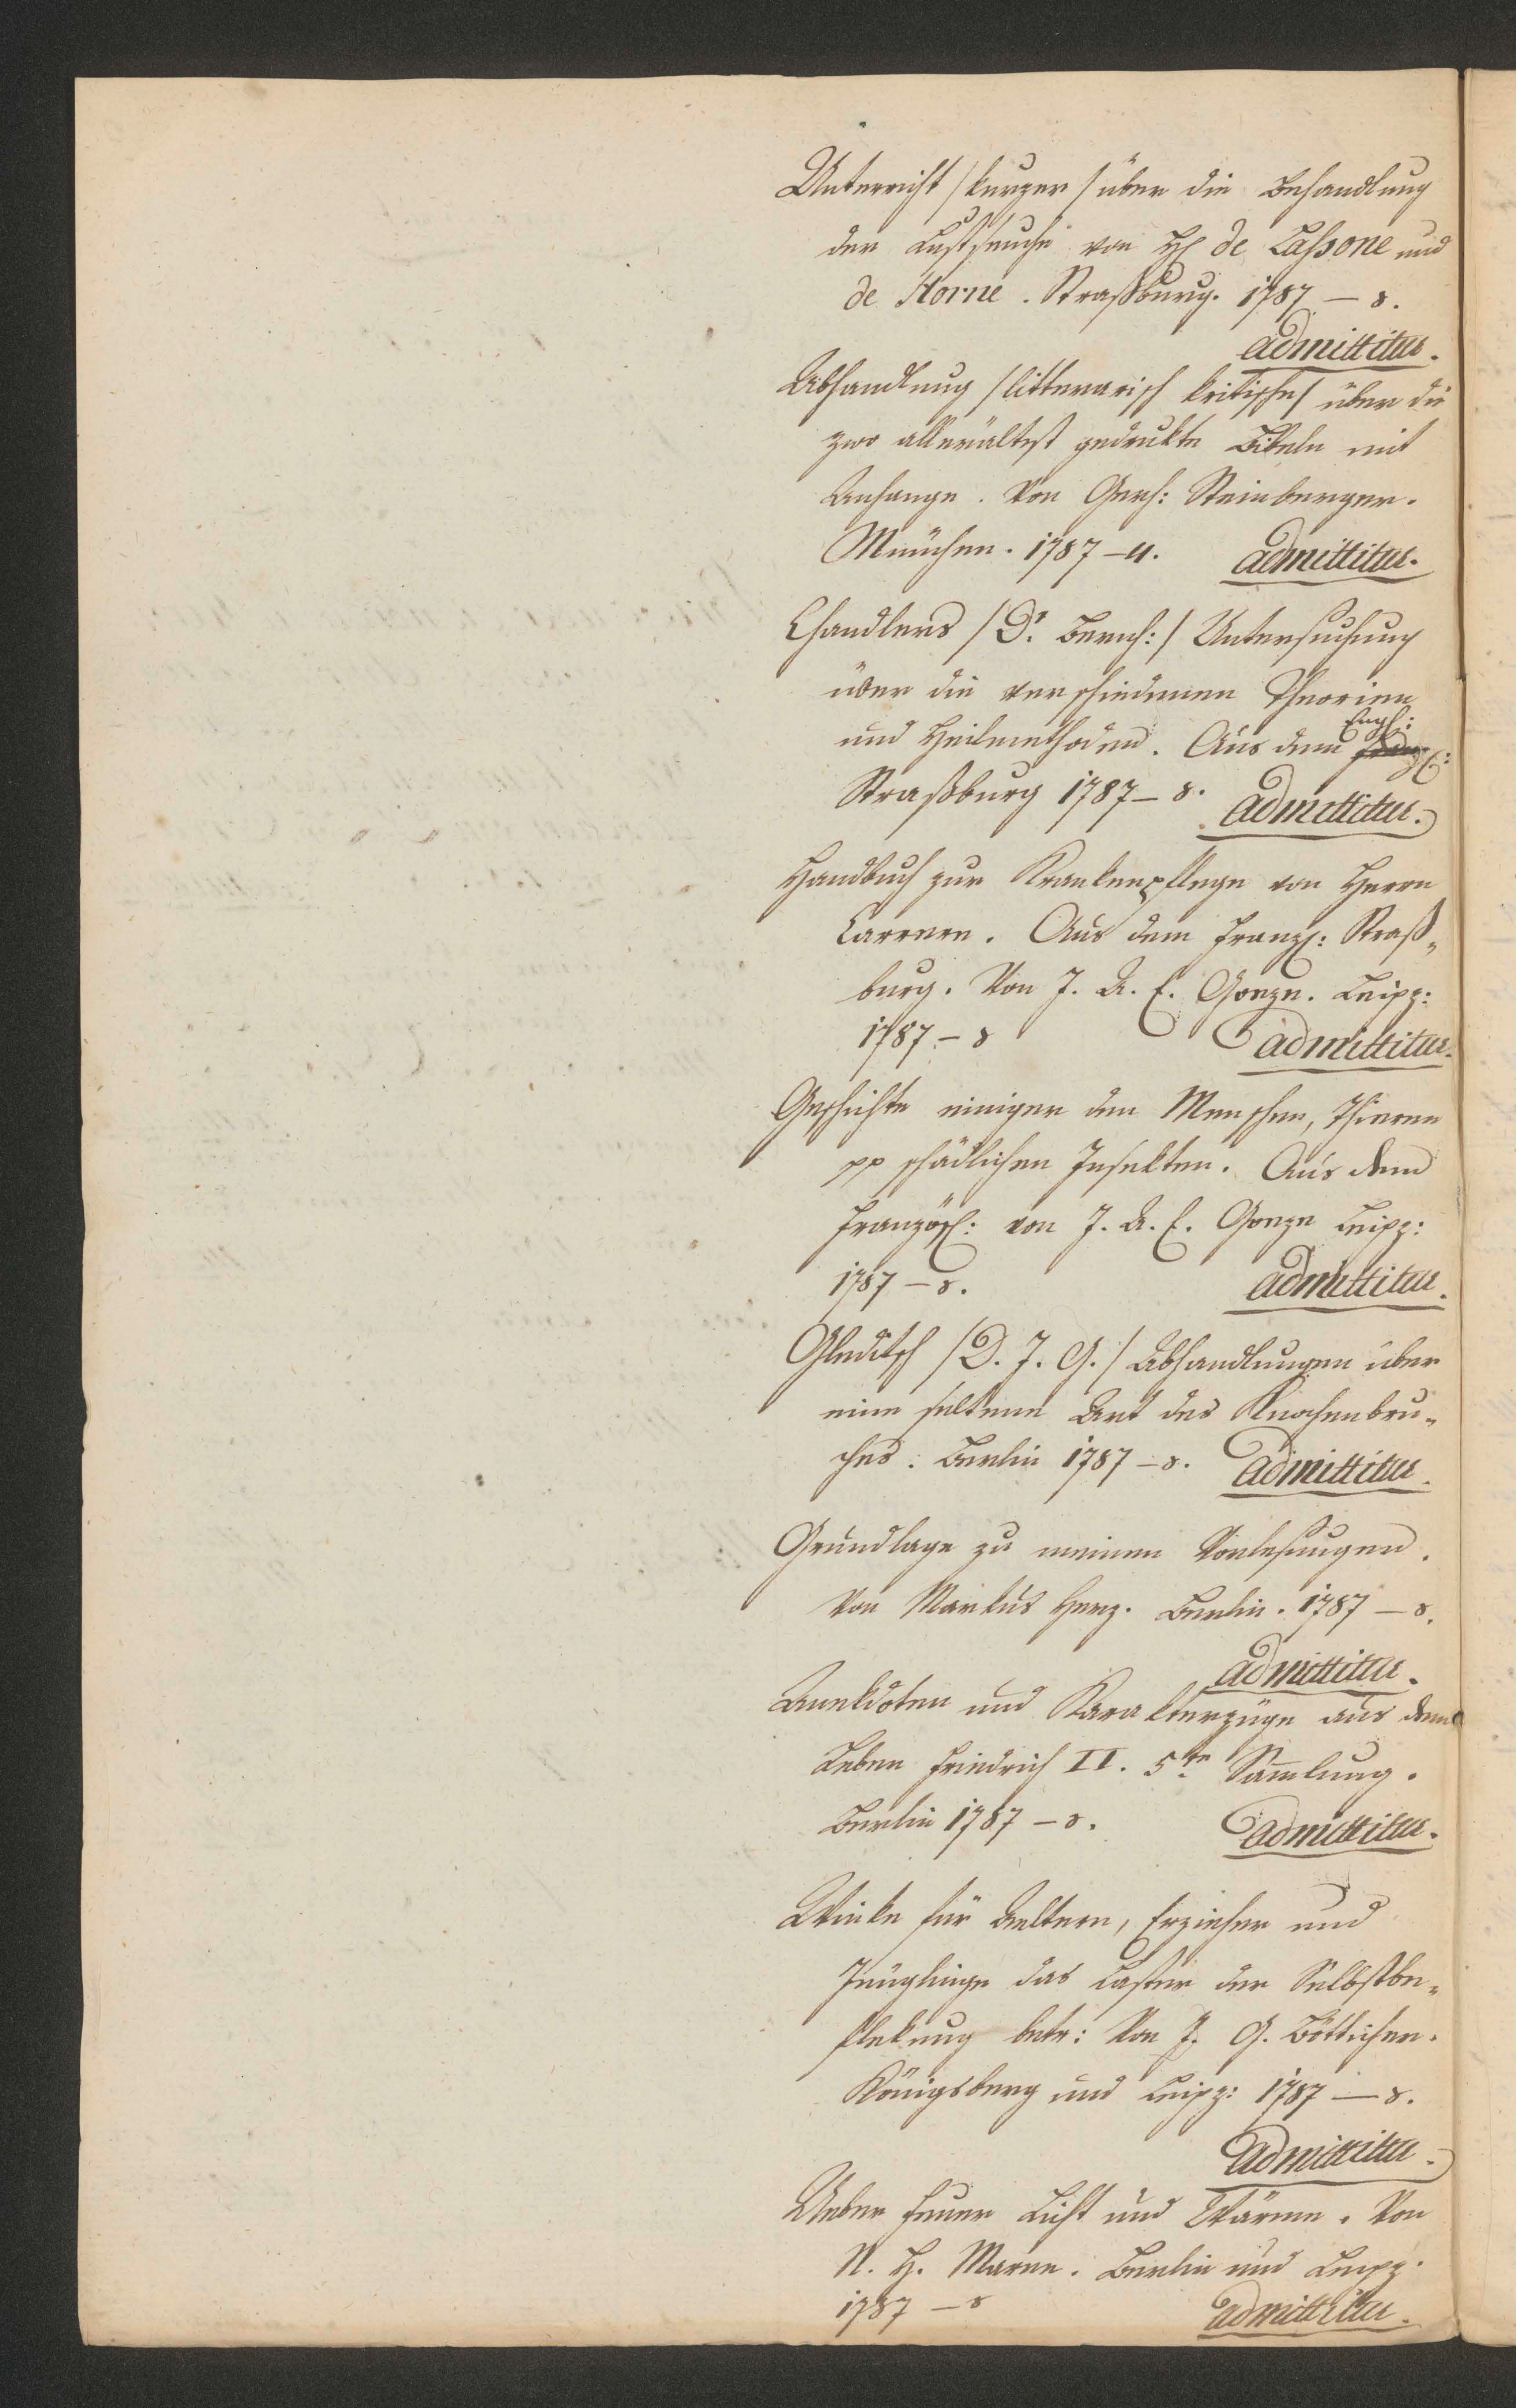 Unterricht /kurzer/ über die Behandlung
der Lustseuche von H. de Lassone und
de Horne. Straßburg. 1787 – 8.
admittitur.
Abhandlung /litterarisch kritische/ über die
zwo allerältest gedrukte Bibeln mit
Anhange. Von Gerh: Steinberger.
München. 1787 – 4. admittitur.
Chandlers /Dr. Benj:/ Untersuchung
über die verschiedenen Theorien
Engl:
und Heilmethoden. Aus dem Franz:
Straßburg 1787 – 8. admittitur.
Handbuch zur Krankenpflege von Herrn
Carrere. Aus dem Franz: Straß-
burg. Von J. A. E. Goeze. Leipz:
1787 – 8 admittitur.
Geschichte einiger den Menschen, Thieren
pp schädlichen Insekten. Aus dem
Französ: von J. A. E. Goeze Leipz:
1787 – 8. admittitur.
Gleditsch /D. J. G./ Abhandlungen über
eine seltene Art des Knochenbru-
ches. Berlin 1787 – 8. admittitur.
Grundlage zu meinen Vorlesungen.
Von Markus Herz. Berlin. 1787 – 8.
admittitur.
Anekdoten und Karakterzüge aus dem
Leben Friedrich II. 5te Samlung.
Berlin 1787 – 8. admittitur.
Winke für Aeltern, Erzieher und
Jünglinge das Laster der Selbstbe-
flekung betr: Von J. G. Bötticher.
Königsberg und Leipz: 1787 – 8.
admittitur.
Ueber Feuer Licht und Wärme. Von
N. H. Marne. Berlin und Leipz.
1787 – 8 admittitur.